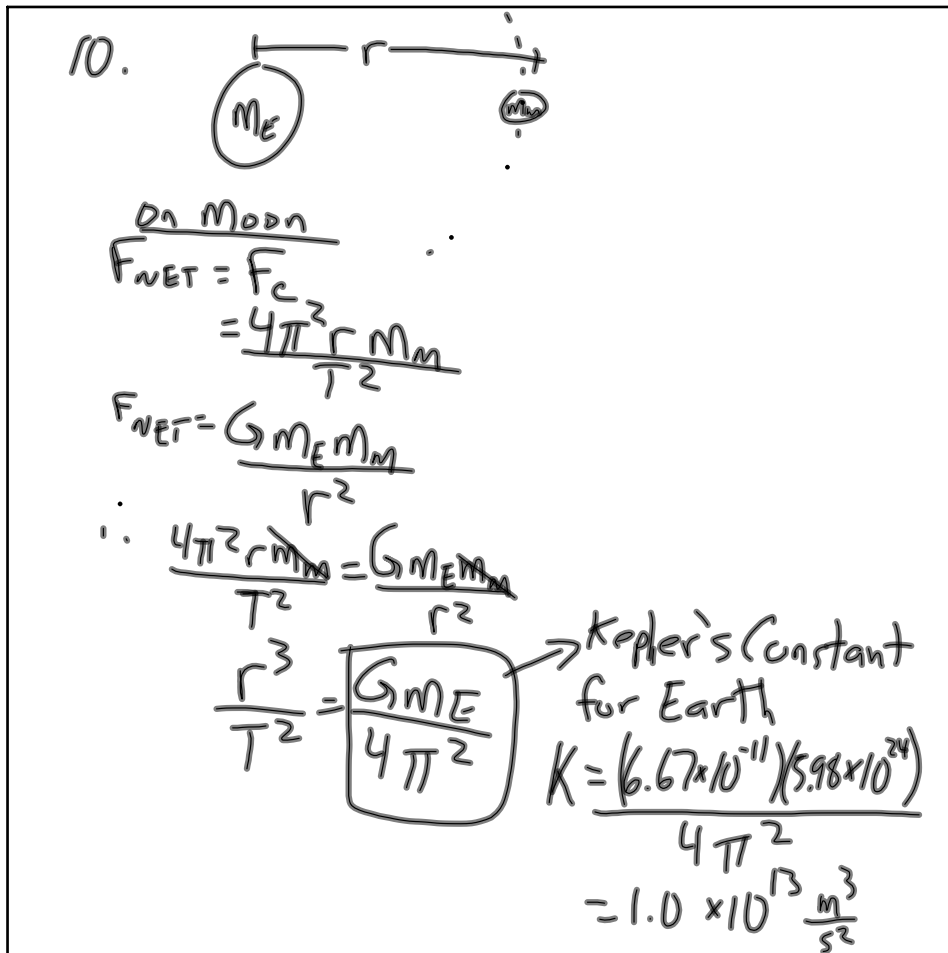 10.
r
mE
mm
On Moon
FNET = Fc
= 4π²r mm
T²
FNET = G mE mm
r²
∴ 4π²r mm = G mE mm
T² r²
r³ = G mE
T² 4π²
Kepler's Constant
for Earth
K = (6.67×10⁻¹¹)(5.98×10²⁴)
4π²
= 1.0 ×10¹³ m³
s²